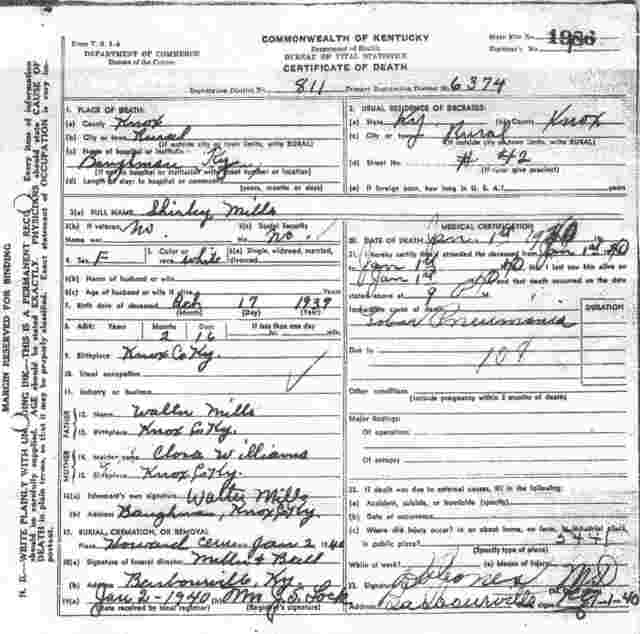 Form V. S. 1-A
DEPARTMENT OF COMMERCE
Bureau of the Census
COMMONWEALTH OF KENTUCKY
Department of Health
BUREAU OF VITAL STATISTICS
CERTIFICATE OF DEATH
State File No. 1986
Registrar's No.
Registration District No. 811 Primary Registration District No. 6374
MARGIN RESERVED FOR BINDING
1. PLACE OF DEATH:
(a) County Knox
(b) City or town Rural
(If outside city or town limits, write RURAL)
(c) Name of hospital or institution:
Baughman Ky
(If not in hospital or institution write street number or location)
(d) Length of stay: In hospital or community
(years, months or days)
2. USUAL RESIDENCE OF DECEASED:
(a) State Ky (b) County Knox
(c) City or town Rural
(If outside city or town limits, write RURAL)
(d) Street No. # 42
(If rural give precinct)
(e) If foreign born, how long in U. S. A.? years
3(a) FULL NAME Shirley Mills
3(b) If veteran, No 3(c) Social Security
Name war No. No.
4. Sex F 5. Color or race white 6(a) Single, widowed, married, divorced
6(b) Name of husband or wife
6(c) Age of husband or wife if alive Years
7. Birth date of deceased Oct 17 1939
(Month) (Day) (Year)
8. AGE: Years Months Days If less than one day
2 16 hr. min.
9. Birthplace Knox Co Ky.
10. Usual occupation
11. Industry or business
FATHER
12. Name Walter Mills
13. Birthplace Knox Co Ky.
MOTHER
14. Maiden name Clora Williams
15. Birthplace Knox Co Ky.
16(a) Informant's own signature Walter Mills
(b) Address Baughman, Knox Co Ky
17. BURIAL, CREMATION, OR REMOVAL
Place Howard cem Jan 2 1940
18(a) Signature of funeral director Miller & Bell
(b) Address Barbourville, Ky.
19(a) Jan 2-1940 (b) Mrs J. S. Lock
(Date received by local registrar) (Registrar's signature)
MEDICAL CERTIFICATION
20. DATE OF DEATH Jan 1st 1940
21. I hereby certify that I attended the deceased from Jan 1st 40
to Jan 1st 40, I last saw him alive on
Jan 1st 40 and that death occurred on the date
stated above at 9
Immediate cause of death DURATION
Lobar Pneumonia
Due to
108
Other conditions
(Include pregnancy within 3 months of death)
Major findings:
Of operations
Of autopsy
22. If death was due to external causes, fill in the following:
(a) Accident, suicide, or homicide (specify)
(b) Date of occurrence
(c) Where did injury occur? In or about home, on farm, in industrial place,
in public place?
(Specify type of place)
While at work? (e) Means of injury
23. Signature M.D.
Address Barbourville 1-1-40